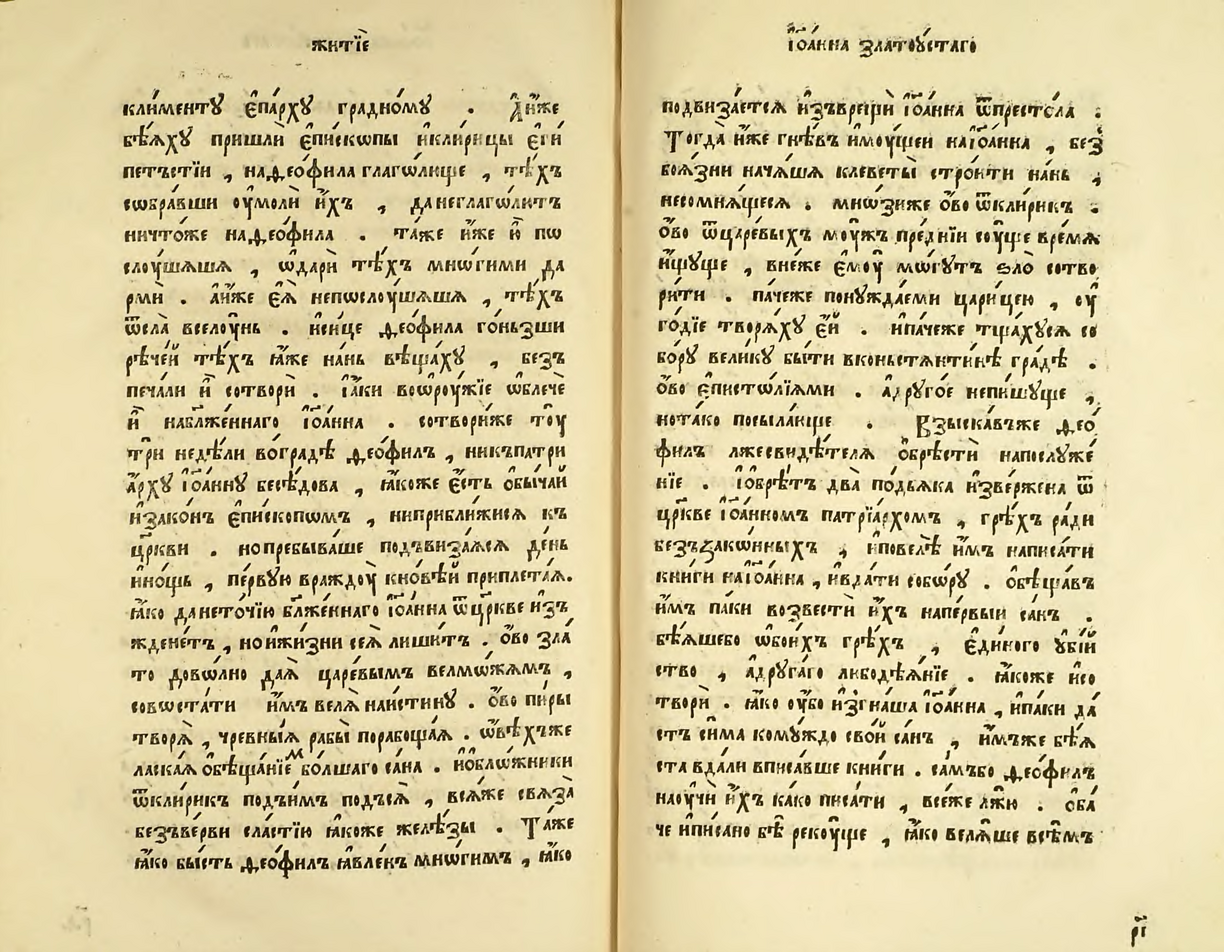 житїѐ
кли́менту є҆па́рху гра́дному . А҆́иже
бѣ́яху пришлѝ є҆пи́скѡпы иклирицы є҆гѝ
петъстїи , наѲео́фила глаго́люще , тѣ́хъ
сѡбра́вши оу҆молѝ и҆́хъ , данеглаго́лютъ
ничто́же наѲео́фила . та́же и҆́же и҆̀ пѡ
слоу́шашѧ , ѡ҆дарѝ тѣ́хъ мно́гими да
рмѝ . а҆́иже є҆ѧ̀ непослоу́шашѧ , тѣ́хъ
ѿсла̀ вселоу́нь . и҆си́це Ѳео́фила го́ньзши
рѣче́й тѣ́хъ ꙗ҆́же нань вѣща́ху , безъ
печа́ли и҆̀ сотворѝ . ꙗ҆́ки воѡ҆роу́жїе ѡ҆блечѐ
и҆̀ наблаже́ннаго і҆оа́нна . сотвори́же тоу̀
трѝ неде́ли вогра́дѣ Ѳео́филъ , никъпатри
а҆́рху і҆оа́нну бесѣ́дова , ꙗ҆́коже є҆́сть о҆бы́чай
и҆зако́нъ є҆пи́скопѡмъ , ниприбли́жисѧ къ
цр҃кви . нопребыва́ше подъвиза́ѧсѧ де́нь
и҆но́щь , пе́рвую враждоу̀ кно́вѣй приплета́ѧ.
ꙗ҆́ко дането́чїю бл҃же́ннаго і҆оа́нна ѿцр҃кве и҆зъ
ждене́тъ , нои҆жи́зни сеѧ̀ лиши́тъ . о҆́во зла́
то дово́лно даѧ̀ ца́ревымъ велмо́жамъ ,
совѡста́ти и҆́мъ велѧ̀ наи́стину . о҆́во пи́ры
творѧ̀ , чре́вныѧ рабы̀ порабоща́ѧ . ѡ҆вѣ́хъже
ласка́ѧ о҆бѣща́нїем бо́лшаго са́на . и҆обло́жники
ѿкли́рикъ подъи́мъ подъсѧ̀ , всѧ́же свѧза̀
безъве́рви сла́стїю ꙗ҆́коже желѣ́зы . Та́же
ꙗ҆́ко бы́сть Ѳео́филъ ꙗ҆вле́нъ мно́гимъ , ꙗ҆́ко
і҆оа́нна златоу́стаго
подвиза́етсѧ и҆зъврещѝ і҆оа́нна ѿпресто́ла :
Тогда̀ и҆́же гнѣ́въ и҆моу́щеи наі҆оа́нна , без
боѧ́зни нача́шѧ клеветы̀ стро́ити нань ,
несомнѧ́щесѧ . мно́зиже о҆́во ѿкли́рикъ :
о҆́во ѿца́ревыхъ моу́жъ пре́днїи соу́ще вре́мѧ
и҆́щуще , вне́же є҆моу̀ мо́гутъ ѕло̀ сотво
ри́ти . па́чеже понужда́еми цари́цею , оу҆
го́дїе творѧ́ху є҆́й . и҆па́чеже тща́хусѧ со
бо́ру вели́ку бы́ти вконьстѧнти́нѣ гра́дѣ .
о҆́во є҆писто́лїѧми . а҆друго́е непи́шуще ,
нота́ко посыла́юще . Взыска́въже Ѳео́
филъ лжесвидѣ́телѧ о҆брѣ́сти напослуже́
нїе . і҆обрѣ́тъ два̀ поддьѧ́ка и҆зве́ржена ѿ
цр҃кве і҆оа́нномъ патрїа́рхомъ , грѣ́хъ ра́ди
безъзако́нныхъ , и҆повелѣ̀ и҆́мъ написа́ти
кни́ги наі҆оа́нна , и҆вда́ти собо́ру . о҆бѣща́въ
и҆́мъ па́ки возвестѝ и҆́хъ напе́рвыи са́нъ .
бѣ́ѧшебо ѡ҆бои́хъ грѣ́хъ , є҆ди́ного у҆бі́й
ство , а҆друга́го либодѣ́ѧнїе . ꙗ҆́коже и҆со
творѝ . ꙗ҆́ко оу҆́бо и҆згна́ша і҆оа́нна , и҆па́ки да́
стъ си́ма кому́ждо сво́й са́нъ , и҆́мъже бѣ́ѧ
ста вда́ли вписа́вше кни́ги . са́мъбо Ѳео́филъ
наоу҆чѝ и҆́хъ ка́ко писа́ти , все́же лжю̀ . о҆ба́
че и҆пи́сано бѣ̀ рекоу́ще , ꙗ҆́ко велѧ́ше всѣ́мъ
рі҃